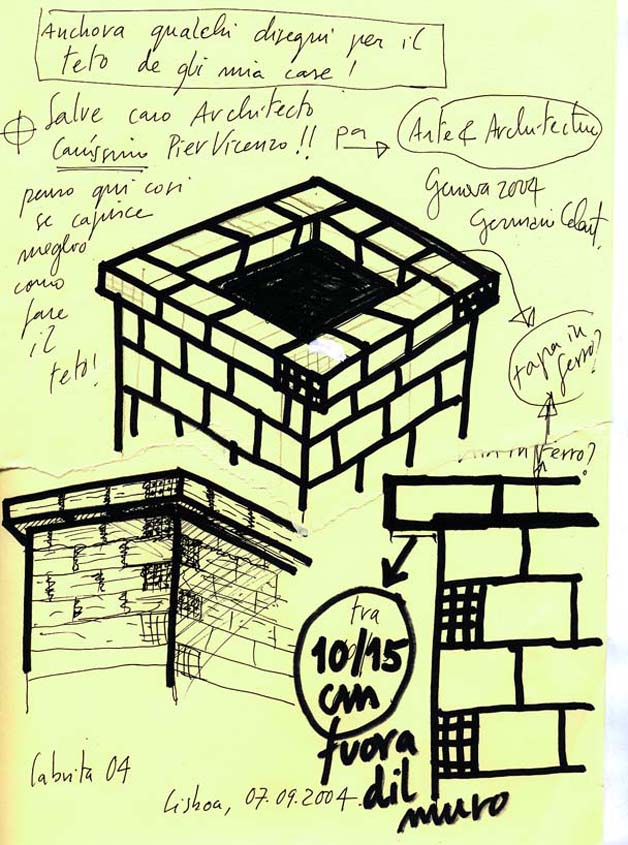 Anchora qualchi disegni per il
teto de gli mia case!
Salve caro Architecto
Caríssimo PierVicenzo!! pa
Arte & Architectura
Genova 2004
Germano Celant,
penso qui cosi
se capisce
meglio
como
fare
il
teto!
tapa in
ferro?
in ferro?
tra
10/15
cm
fuora
dil
muro
Cabrita 04
Lisboa, 07.09.2004.